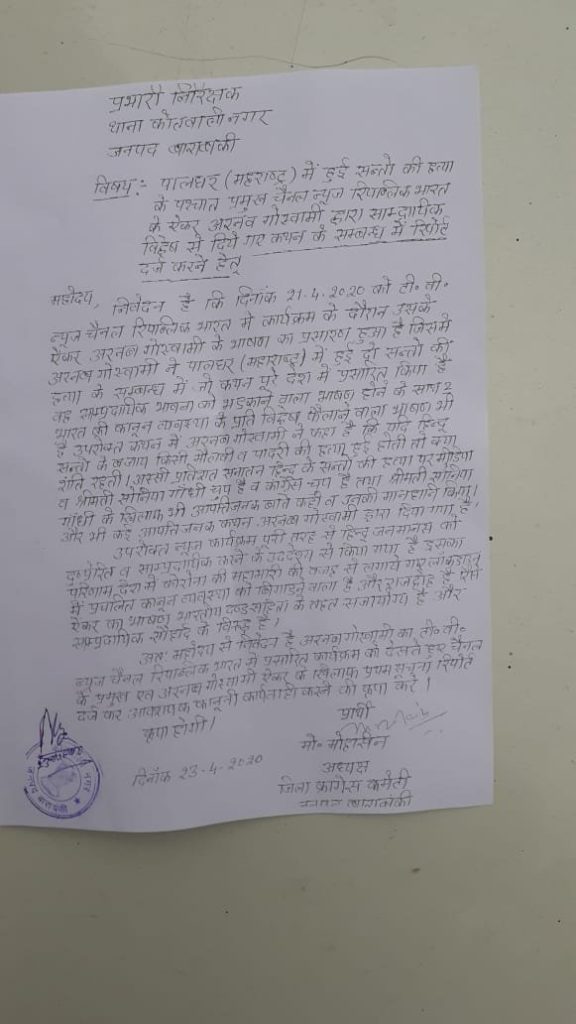 प्रभारी निरिक्षक
थाना कोतवाली नगर
जनपद बाराबंकी
विषय:- पालघर (महाराष्ट्र) में हुई सन्तो की हत्या
के पश्चात प्रमुख चैनल न्यूज रिपब्लिक भारत
के ऐंकर अरनब गोस्वामी द्वारा साम्प्रदायिक
विद्वेष से दिये गए कथन के सम्बन्ध में रिपोर्ट
दर्ज करने हेतु
महोदय,
निवेदन है कि दिनांक 21-4-2020 को टी० वी०
न्यूज चैनल रिपब्लिक भारत में कार्यक्रम के दौरान उसके
ऐंकर अरनब गोस्वामी के भाषण का प्रसारण हुआ है जिसमें
अरनब गोस्वामी ने पालघर (महाराष्ट्र) में हुई दो सन्तो की
हत्या के सम्बन्ध में जो कथन पूरे देश में प्रसारित किया है
वह साम्प्रदायिक भावना को भड़काने वाला भाषण होने के साथ 2
भारत की कानून व्यवस्था के प्रति विद्वेष फैलाने वाला भाषण भी
है उपरोक्त कथन में अरनब गोस्वामी ने कहा है कि यदि हिन्दू
सन्तो के बजाय किसी मौलवी व पादरी की हत्या हुई होती तो क्या
शांति रहती। अस्सी प्रतिशत सनातन हिन्दू के सन्तो की हत्या पर मीडिया
व श्रीमती सोनिया गाँधी चुप है व कांग्रेस चुप है तथा श्रीमती सोनिया
गाँधी के खिलाफ भी आपत्तिजनक बाते कही व उनकी मानहानि किया।
और भी कई आपत्तिजनक कथन अरनब गोस्वामी द्वारा दिया गया है,
उपरोक्त न्यूज कार्यक्रम पूरी तरह से हिन्दू जनमानस को
दुष्प्रेरित व साम्प्रदायिक करने के उद्देश्य से किया गया है इसका
परिणाम देश में कोरोना की महामारी की वजह से लगाये गए लाकडाउन
में प्रचलित कानून व्यवस्था को बिगाड़ने वाला है और राजद्रोह है ऐसे
ऐंकर का भाषण भारतीय दण्ड संहिता के तहत सजायोग्य है और
साम्प्रदायिक सौहार्द के विरुद्ध है।
अतः महोदय से निवेदन है अरनब गोस्वामी का टी० वी०
न्यूज चैनल रिपब्लिक भारत में प्रसारित कार्यक्रम को देखते हुए चैनल
के प्रमुख एवं अरनब गोस्वामी ऐंकर के खिलाफ प्रथम सूचना रिपोर्ट
दर्ज कर आवश्यक कानूनी कार्यवाही करने की कृपा करें।
कृपा होगी।
प्रार्थी
मो० मोहसिन
अध्यक्ष
जिला कांग्रेस कमेटी
जनपद बाराबंकी
दिनाँक 23-4-2020